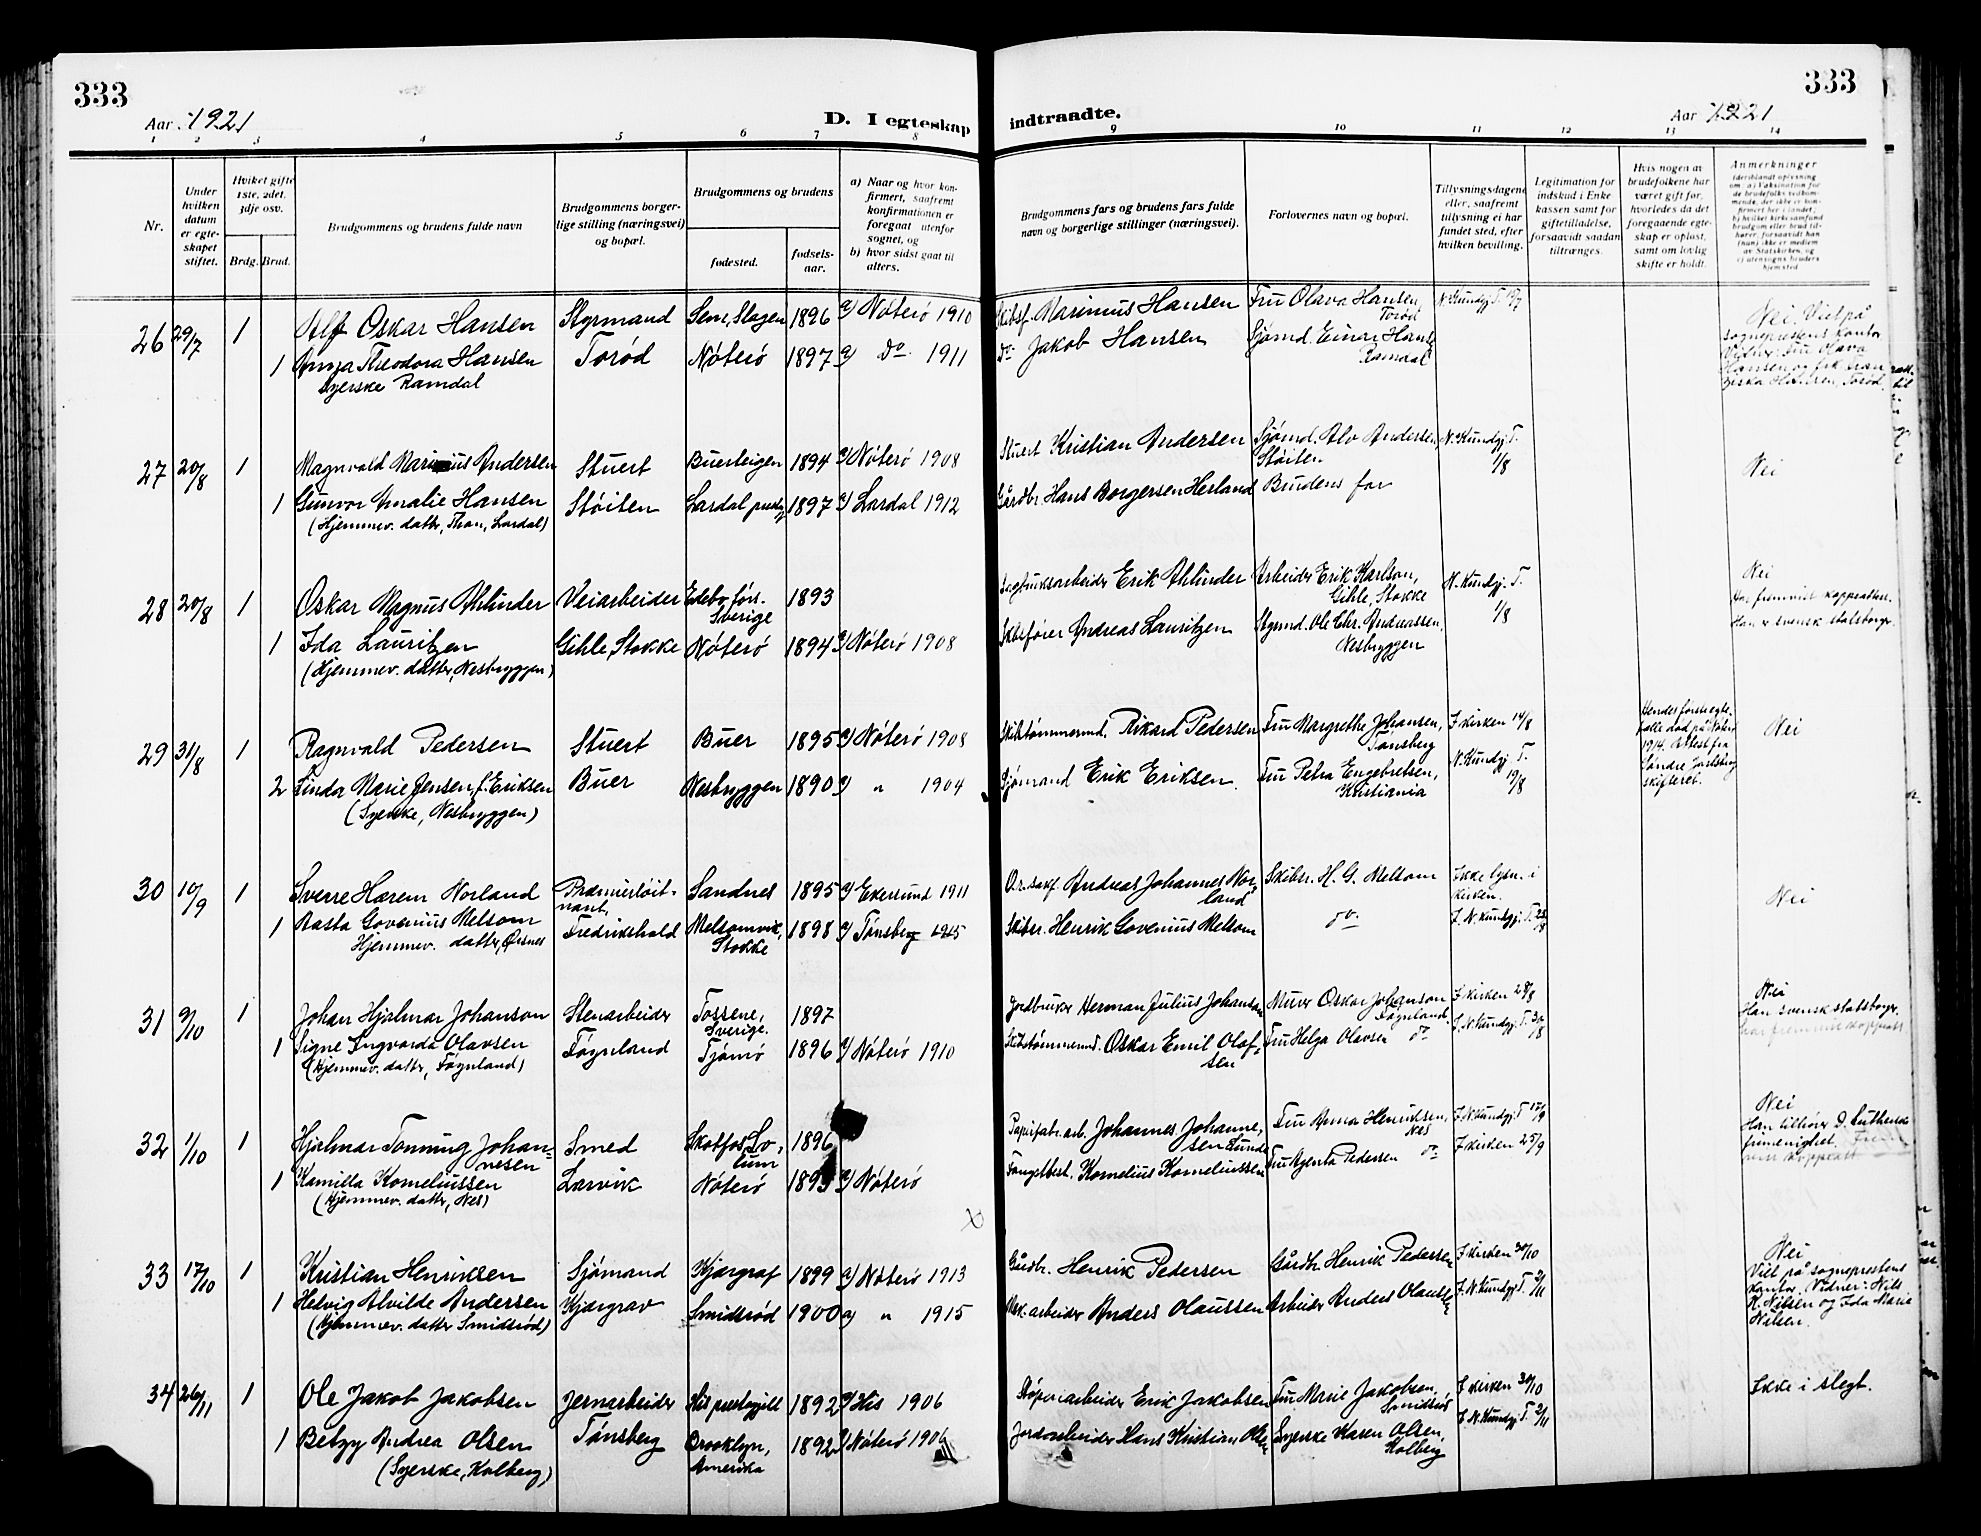 333
Aar 1921
D. I egteskap
indtraadte.
Aar 1921
333
1 2 3 4 5 6 7 8 9 10 11 12 13 14
Nr.
Under hvilken datum er egteskapet stiftet.
Hviket gifte 1ste, 2det, 3dje osv.
Brdg. Brud.
Brudgommens og brudens fulde navn
Brudgommens borgerlige stilling (næringsvei) og bopæl.
Brudgommens og brudens
fødested.
fødselsaar.
a) Naar og hvor konfirmert, saafremt konfirmationen er foregaat utenfor sognet, og
b) hvor sidst gaat til alters.
Brudgommens fars og brudens fars fulde navn og borgerlige stillinger (næringsvei).
Forlovernes navn og bopæl.
Tillysningsdagene eller, saafremt tillysning ei har fundet sted, efter hvilken bevilling.
Legitimation for indskud i Enkekassen samt for giftetilladelse, forsaavidt saadan tiltrænges.
Hvis nogen av brudefolkene har været gift før, hvorledes da det foregaaende egteskap er opløst, samt om lovlig skifte er holdt.
Anmerkninger
26 29/7 1 Alf Oskar Hansen Styrmand Sem, Slagen 1896 a) Nøterø 1910 Skibsf. Marinius Hansen Fru Olava Hansen, Torød N. Kundgj. T. 19/7 Nei. Viet på sogneprestens kontor
1 Anna Theodora Hansen Torød Nøterø 1897 a) do 1911 do Jakob Hansen Sjømd. Einar Hans Ramdal Vidner Fru Olava Hansen og frk.
Syerske Ramdal
27 20/8 1 Magnvald Marinius Andersen Stuert Buerteigen 1894 a) Nøterø 1908 Stuert Kristian Andersen Sjømd. Alv Andersen, Støiten N. Kundgj. T. 1/8 Nei
1 Gunvor Amalie Hansen Støiten Lardal prestg 1897 a) Lardal 1912 Gårdbr. Hans Borgersen Herland Brudens far
(Hjemmev. datter, Thon, Lardal)
28 20/8 1 Oskar Magnus Ahlinder Veiarbeider Edebo førs. Sverige 1893 Sagbruksarbeider Erik Ahlinder Arbeider Erik Karlson, Gihle, Stokke N. Kundgj. T. 1/8 Nei
1 Ida Lauritzen Gihle, Stokke Nøterø 1894 a) Nøterø 1908 Skibsfører Andreas Lauritzen Styrmd. Ole Chr. Andreassen, Nesbryggen Har fremvist koppeattest. Han er svensk statsborger.
(Hjemmev. datter, Nesbryggen)
29 31/8 1 Ragnvald Pedersen Stuert Buer 1895 a) Nøterø 1908 Skibstømmermd. Rikard Pedersen Fru Margrethe Johansen, Tønsberg I kirken 14/8 Hendes første egtefælle død på Nøterø 1914. Attest fra Søndre Jarlsberg skifteret. Nei
2 Linda Marie Jensen f. Eriksen Buer Nesbryggen 1890 a) " 1904 Sjømand Erik Eriksen. Fru Petra Engebretsen, Kristiania N. Kundgj. T. 19/8
(Syerske, Nesbryggen)
30 10/9 1 Sverre Harem Norland Premierløitnant, Sandnes 1895 a) Ekersund 1911 O.r.sakf. Andreas Johannes Norland Skibsr. H. G. Melsom Ikke lysn. i kirken. Nei
1 Rasta Govenius Melsom Fredrikshald Melsomvik, Stokke 1898 a) Tønsberg 1915 Skibsr. Henrik Govenius Melsom do I. N. Kundgj. T. 23/8
Hjemmev. datter, Ørsnes
31 9/10 1 Johan Hjalmar Johanson Stenarbeider Tossene, Sverige. 1897 Jordbruker Herman Julius Johanson Murer Oskar Johanson Føynland I kirken 28/8 Nei
1 Signe Ingvarda Olavsen Føynland Tjømø 1896 a) Nøterø 1910 Skibstømmermd. Oskar Emil Olafsen Fru Helga Olavsen do I. N. Kundgj. T. 30/8 Han svensk statsborger. har fremvist koppeatt.
(Hjemmev. datter, Føynland)
32 1/10 1 Hjalmar Tonning Johannesen Smed Skotfos, Solum 1896 Papirfabr. arb. Johannes Johannesen Lunde Fru Anna Henriksen, Nes I. N. Kundgj. T. 17/9 Nei
1 Kamilla Korneliussen Larvik Nøterø 1895 a) Nøterø Fangstbest. Kornelius Korneliussen Fru Agenta Pedersen do I kirken 25/9 Han tilhører D. lutherske frimenighet.
(Hjemmev. datter, Nes)
33 17/10 1 Kristian Henriksen Sjømand Kjærgraf 1899 a) Nøterø 1913 Gårdbr. Henrik Pedersen Gårdbr. Henrik Pedersen I kirken 30/10 Nei
1 Helvig Alvilde Andersen Kjærgrav Smidsrød 1900 a) " 1915 Mek. arbeider Anders Olaussen Arbeider Anders Olaussen I. N. Kundgj. T. 2/11 Viet på sogneprestens kontor. Vidner: Nils K. Nilsen og Ida Marie Nilsen.
(Hjemmev. datter Smidsrød)
34 26/11 1 Ole Jakob Jakobsen Jernarbeider His prestegjeld 1892 a) His 1906 Støperiarbeider Erik Jakobsen Fru Marie Jakobsen, Smidsrød I kirken 30/10 Ikke i slegt.
1 Betzy Andrea Olsen Tønsberg Brooklyn, Amerika 1892 a) Nøterø 1906 Jordarbeider Hans Kristian Olsen Syerske Karen Olsen, Kolberg I. N. Kundgj. T. 2/11
(Syerske, Kolberg)